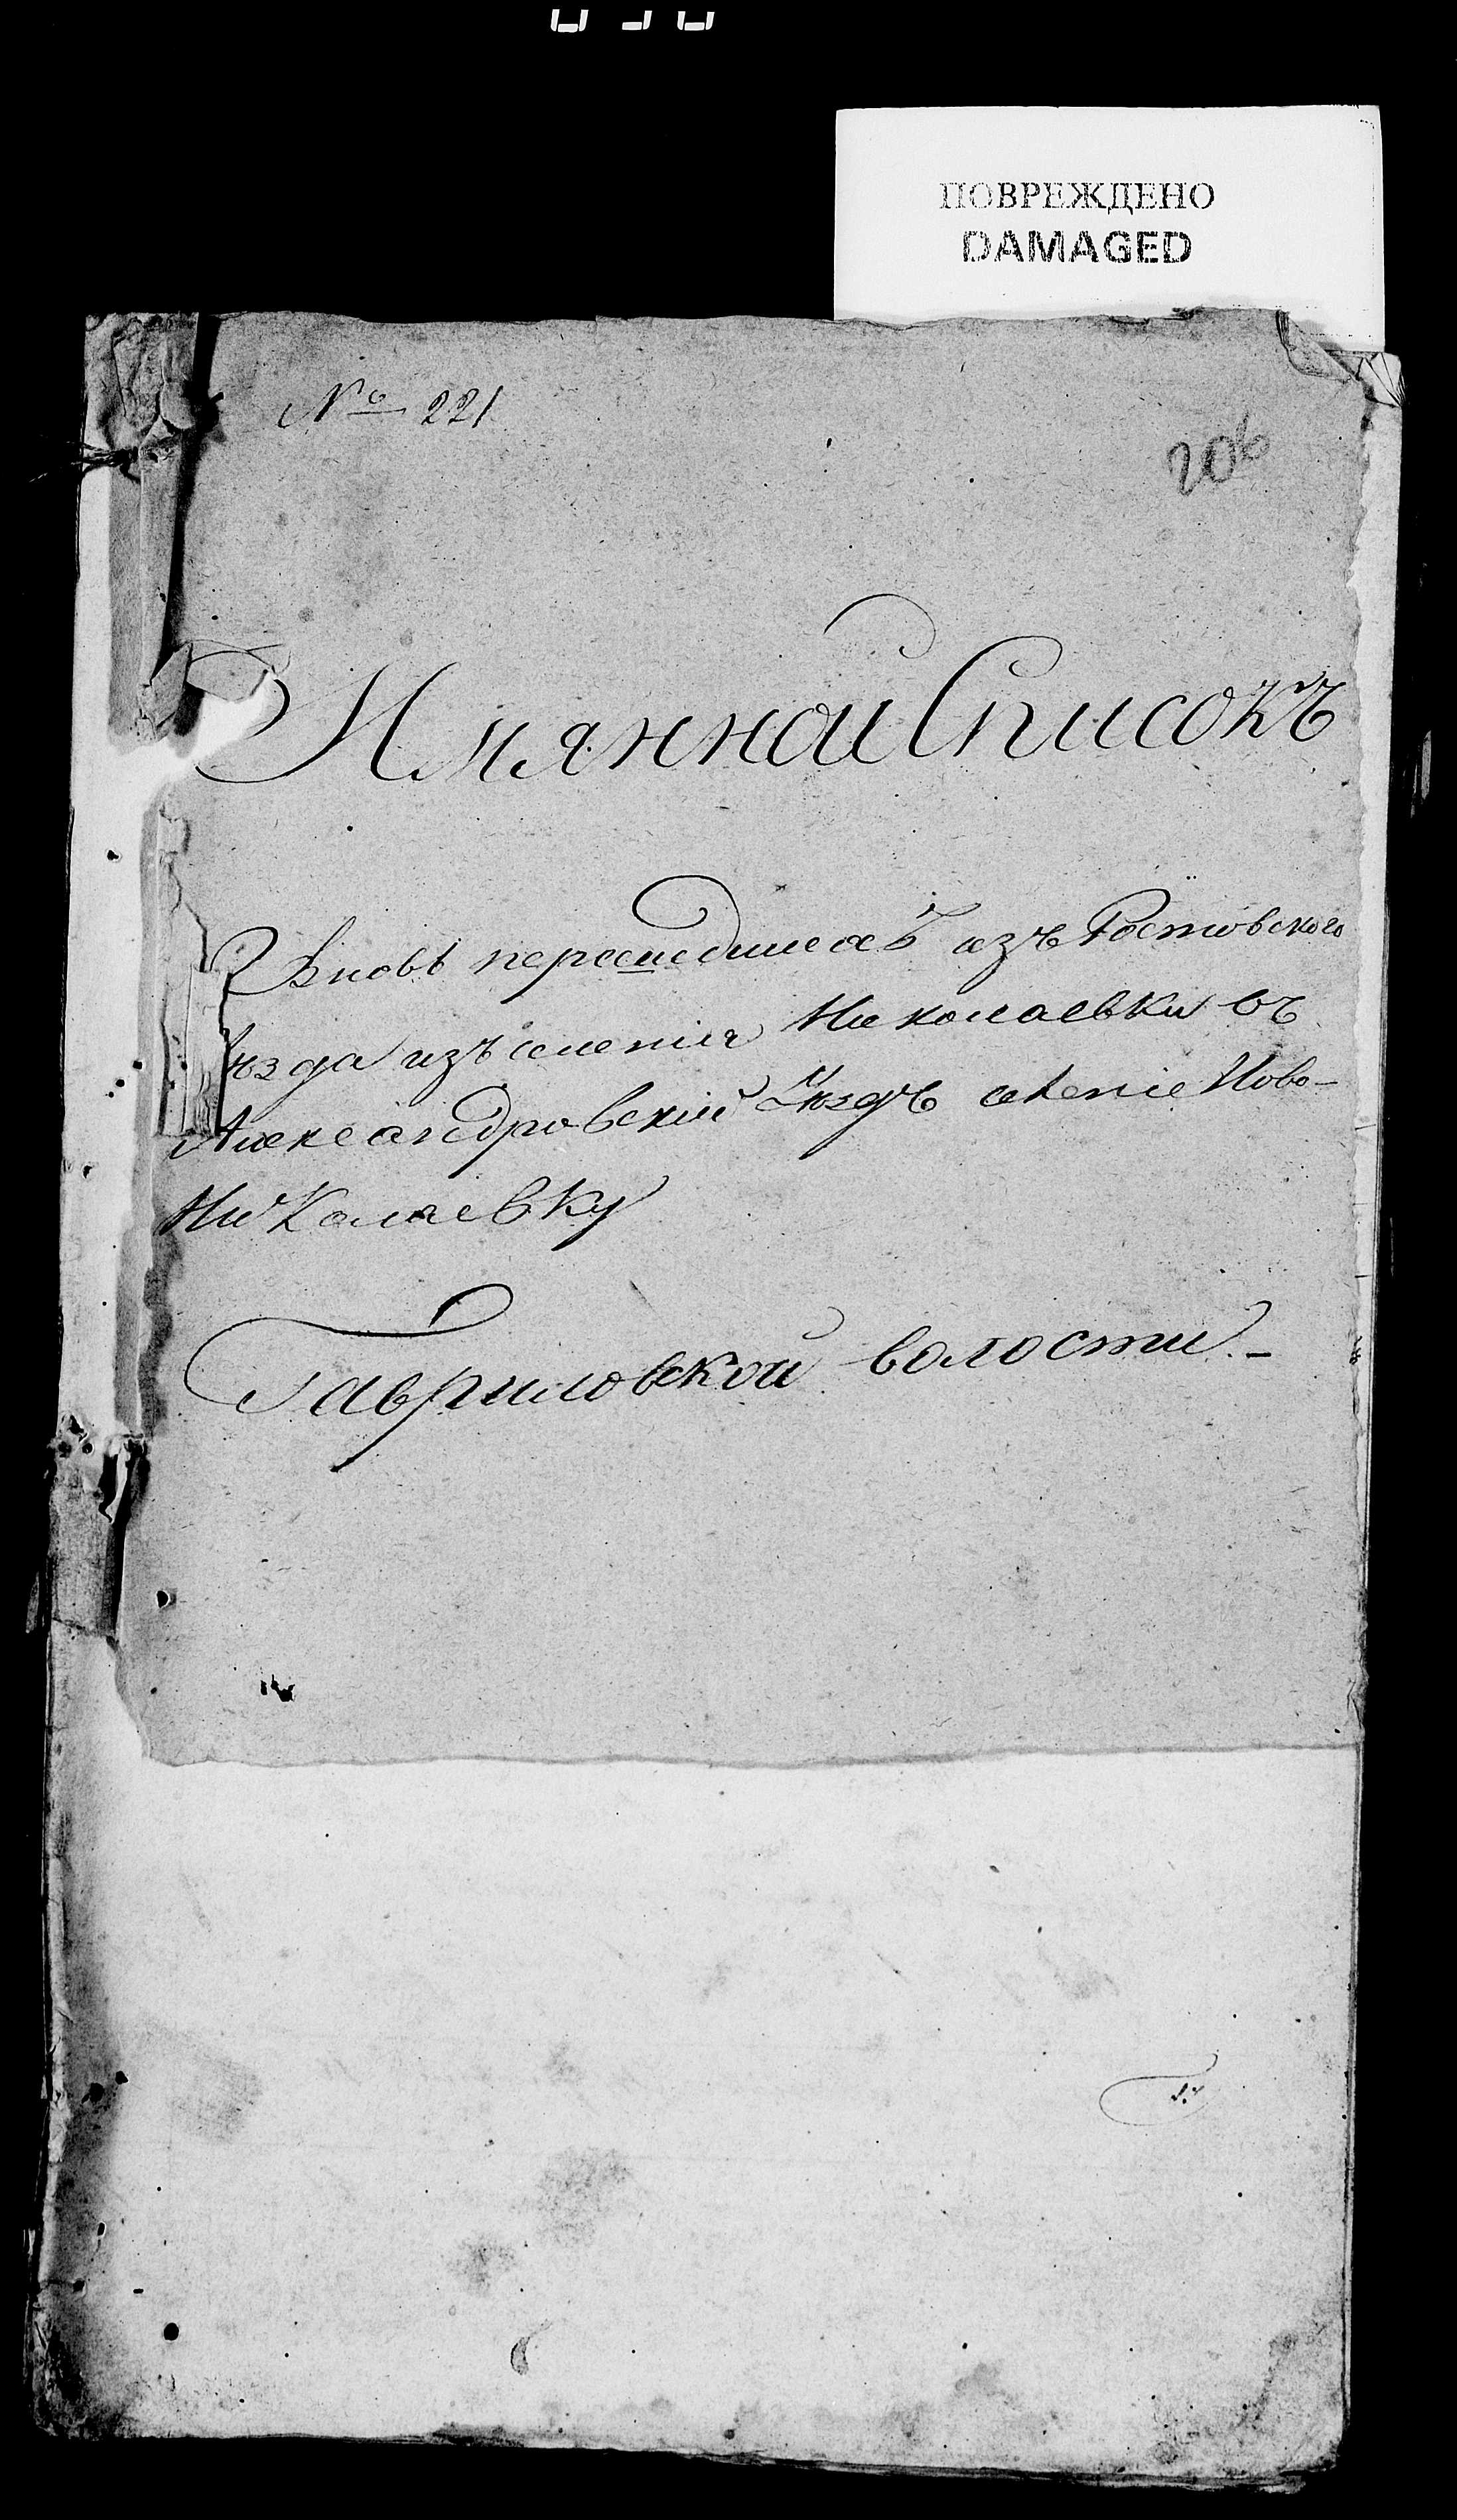 ПОВРЕЖДЕНО
DAMAGED
№ 221
206
Имянной Списокъ
Вновь перешедшихъ изъ Ростовского
уѣзда изъ селенія Николаевки въ
Александровскій Уѣздъ селеніе Ново-
Николаевку
Гавриловской волости.-